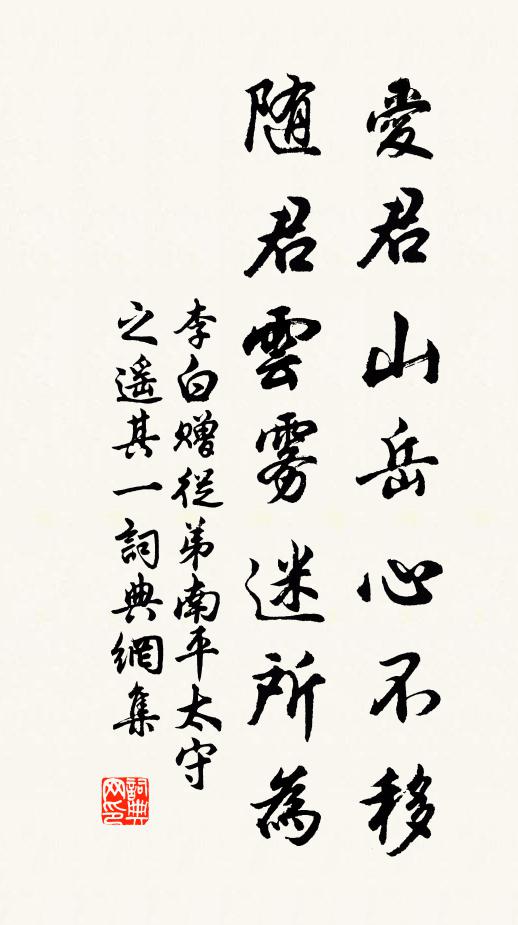 愛君山岳心不移
随君雲雾迷所為
李白赠從弟南平太守
之遥其一詞典網集
詞典网印